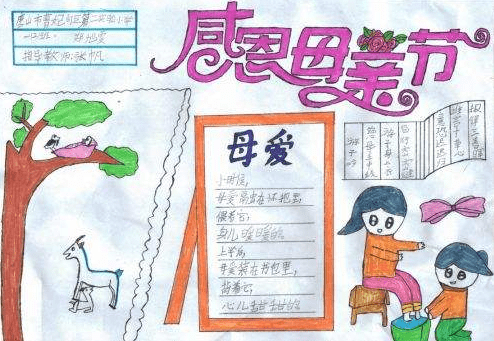 唐山市曹妃甸区第二实验小学
指导教师:张帆
感恩母亲节
母爱
小时候,
母爱是在怀抱里,
偎着它,
身儿暖暖的
上学后,
母爱装在书包里,
背着它,
心儿甜甜的
游子吟
慈母手中线
游子身上衣
临行密密缝
意恐迟迟归
谁言寸草心
报得三春晖